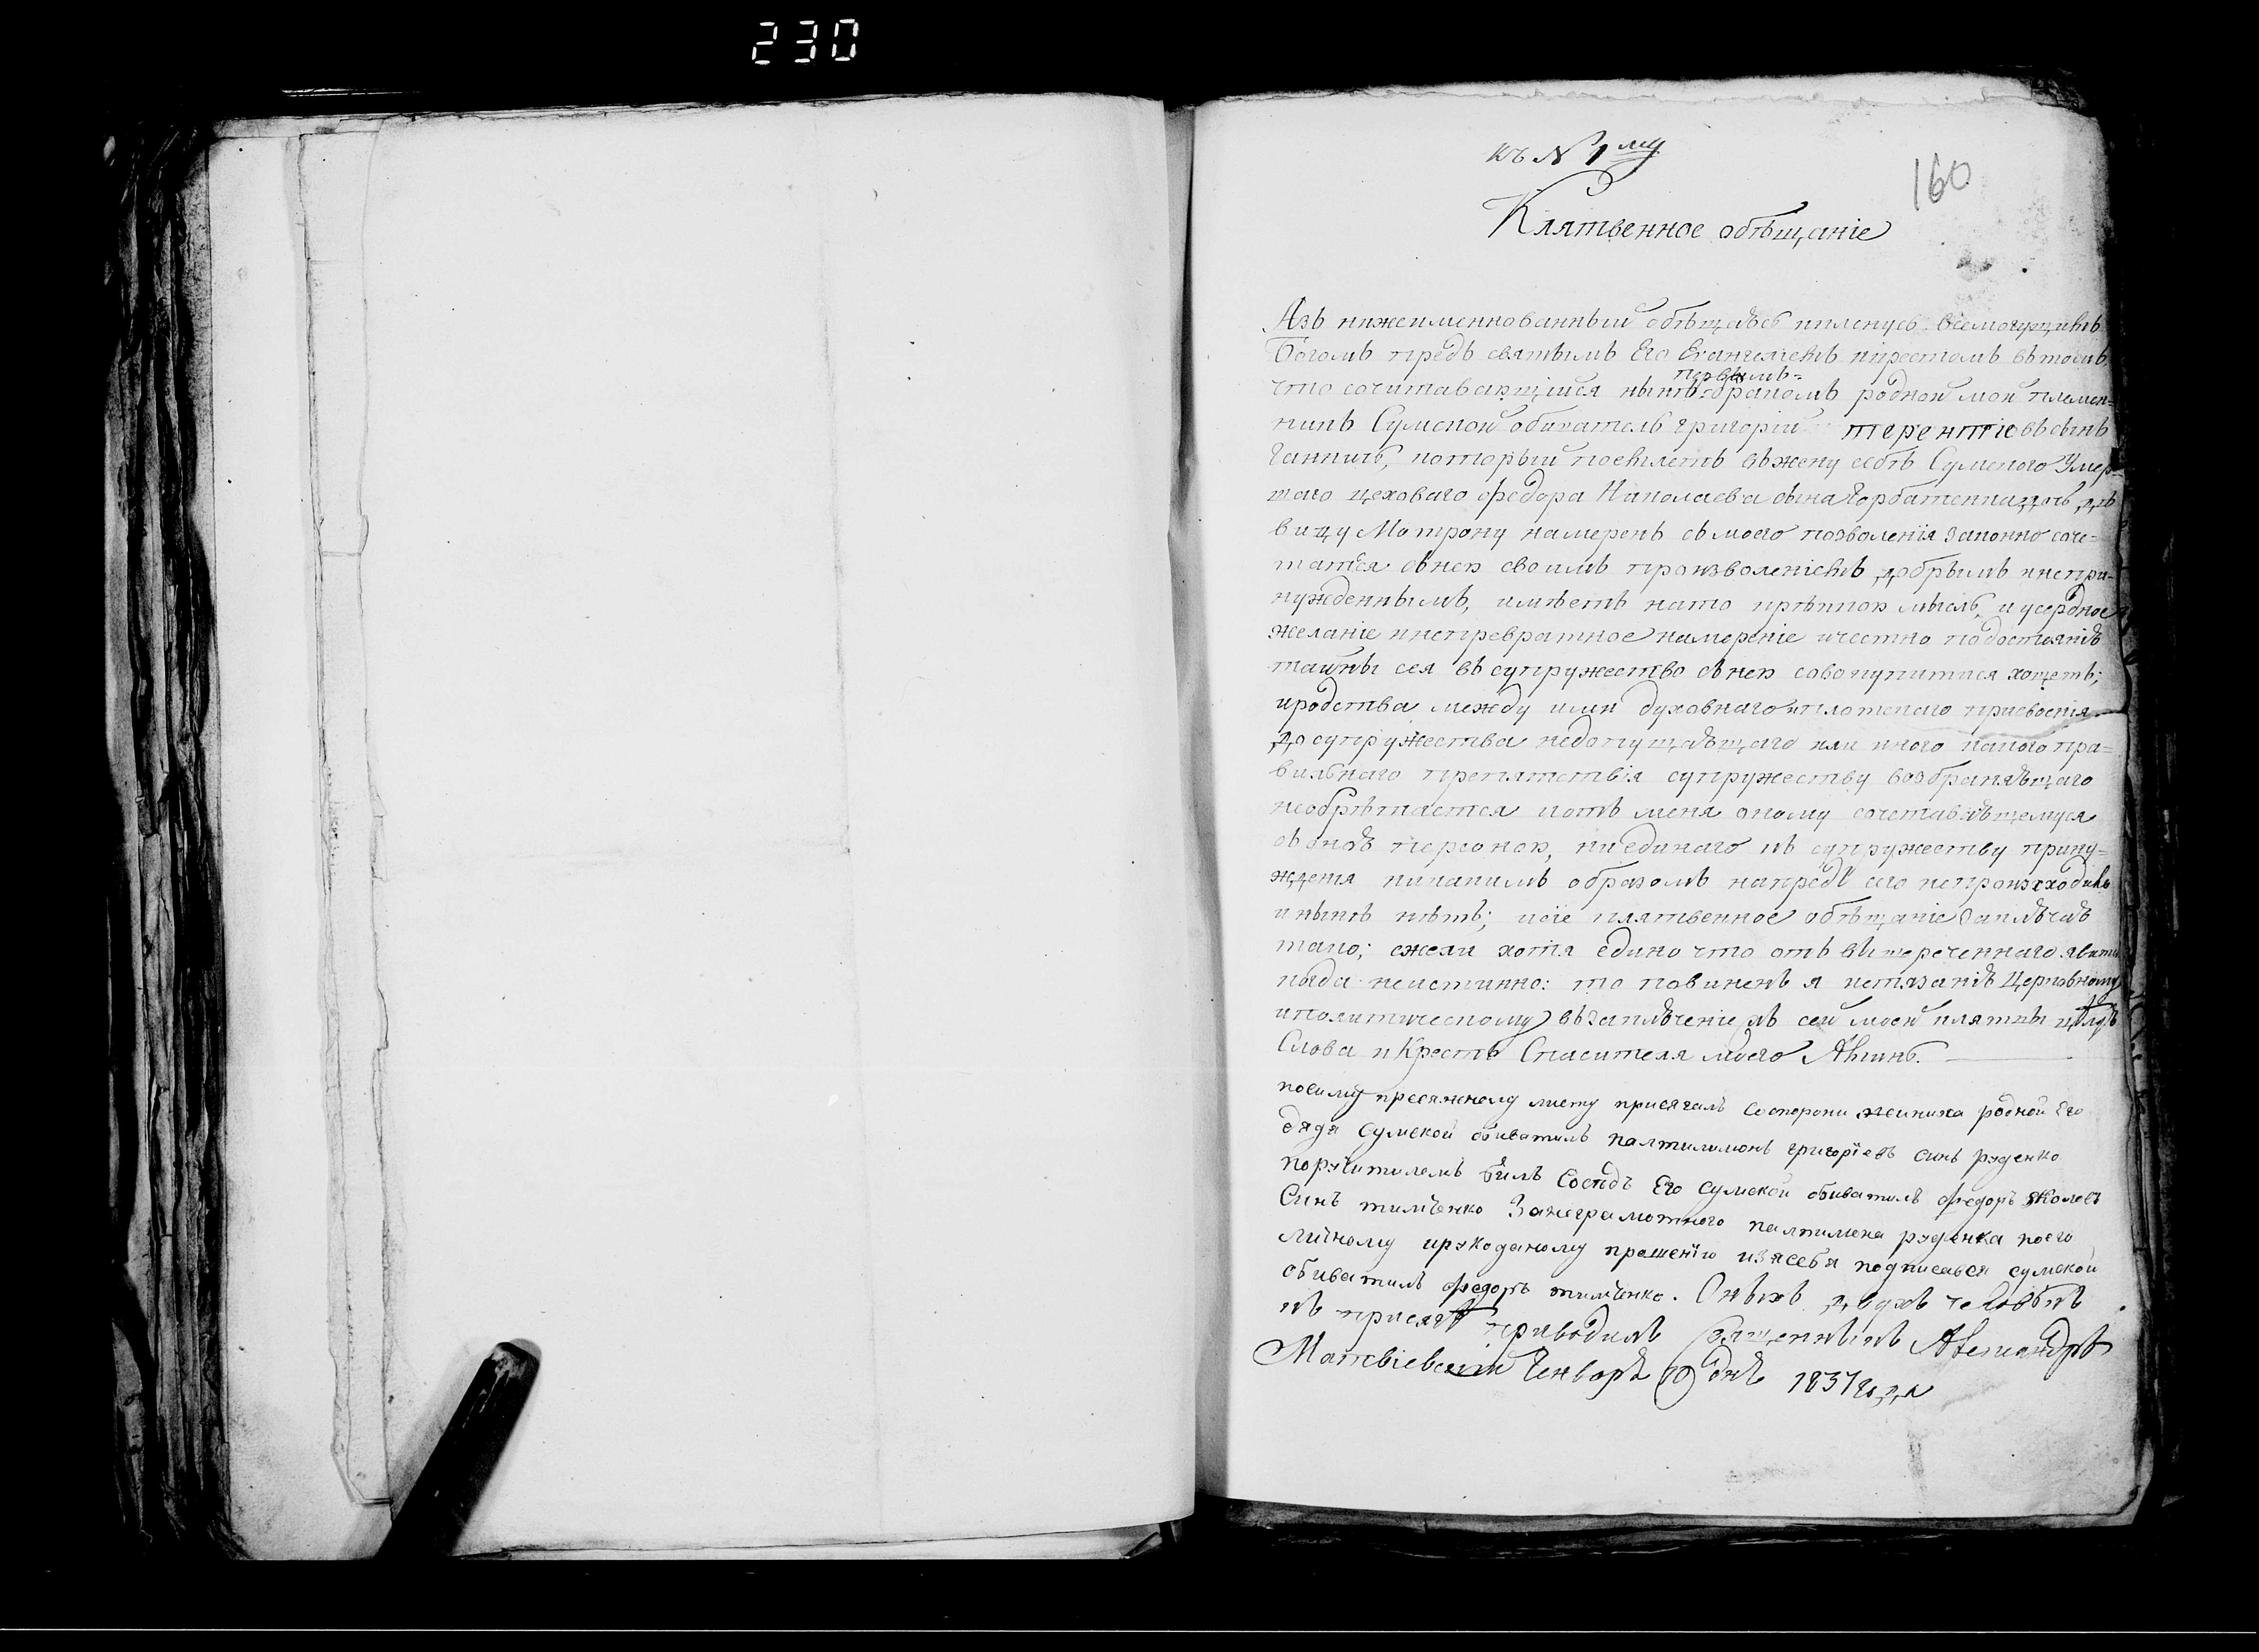 230
къ № 1му
160
Клятвенное обѣщаніе
Азъ нижеименнованный обѣщаюсь и кленусь Всемогущимъ
Богомъ предъ святымъ Его Евангелiемъ и крестомъ въ томъ,
первымъ
что сочитавающійся нынѣ бракомъ родной мой племен-
никъ Сумской обиватель григорій терентіевъ сынъ
который поемлетъ въ жену себѣ Сумского Умер-
шаго цеховаго федора Николаева сына Горбатенка дочь, дѣ
вицу Мотрону намеренъ съ моего позволенія законно соче-
татся съ нею своимъ произволеніемъ, добрымъ и непри-
нужденнымъ, имѣетъ на то крѣпкою мысль, и усердное
желаніе и непревратное намереніе и честно по достоянію
тайны сея въ супружество съ нею совокупитися хощетъ;
и родства между ими духовнаго и плотскаго присвоенія
до супружества недопущающаго или иного какого пра-
вильнаго препятствія супружеству возбраняющаго
необрѣтается и отъ меня оному сочетавающемуся
съ оною персоною, ни единаго къ супружеству прину-
ждения никакимъ образомъ напредъ сего непроизходило
и нынѣ нѣтъ; и сіе клятвенное обѣщаніе заключаю
тако; ежели хотя едино что отъ вышереченнаго явит
когда неистинно: то повиненъ я истязанію Церковному
и политическому въ заключеніе къ сей моей клятвы цѣлую
Слова и Крестъ Спасителя моего Аминь.
по симу пресяжному листу присягалъ состорони жениха родной Его
дядя Сумской обиватилъ палтилимонъ григоріевъ синъ руденко
поручитилемъ билъ Сосѣдъ Его Сумской обиватилъ федоръ яколевъ
Синъ тимченко За неграмотного палтимона руденка поего
личному ирукоданому прошенію и за себя подписався сумской
обиватилъ федоръ тимченко. Оныхъ двухъ человѣкъ
къ присягѣ приводилъ Священникъ Александръ
Матвіевскій Генваря 10 дня 1837 года